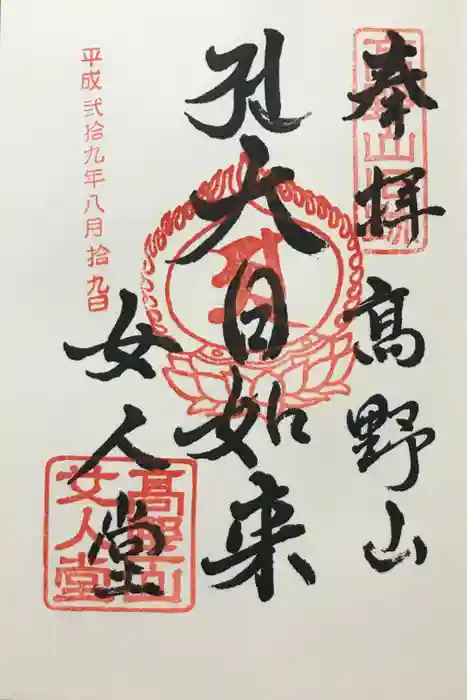 奉拝 髙野山
大日如来
女人堂
平成弐拾九年八月拾九日
髙野山
女人堂